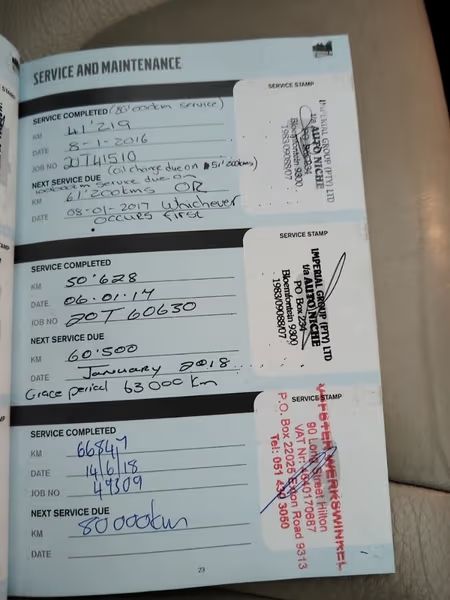 SERVICE AND MAINTENANCE
SERVICE COMPLETED (80'000km service)
KM 41'219
DATE 8-1-2016
JOB NO 20T41510
(oil change due on 51'200kms)
NEXT SERVICE DUE
service due on
KM 61'200kms OR
DATE 08-01-2017 whichever
occurs first
SERVICE STAMP
IMPERIAL GROUP (PTY) LTD
t/a AUTO NICHE
PO Box 234
Bloemfontein 9300
1983/09088/07
SERVICE COMPLETED
KM 50'628
DATE 06.01.17
JOB NO 20T60630
NEXT SERVICE DUE
KM 60'500
DATE January 2018
Grace period 63000km
SERVICE STAMP
IMPERIAL GROUP (PTY) LTD
t/a AUTO NICHE
PO Box 234
Bloemfontein 9300
1983/09088/07
SERVICE COMPLETED
KM 66847
DATE 14/6/18
JOB NO 49309
NEXT SERVICE DUE
KM 80000km
DATE
SERVICE STAMP
WERKSWINKEL
90 Long Street Hilton
VAT Nr:
P.O. Box 22025 Road 9313
Tel: 051 430 3050
23